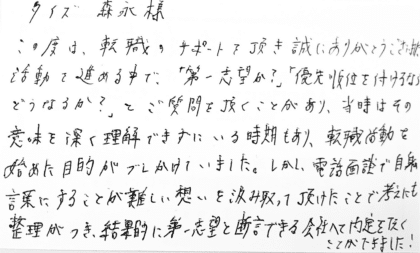 クイズ 森永様
この度は、転職のサポートを頂き誠にありがとうござい
活動を進める中で、「第一志望か?」「優先順位を付けるなら
どうなるか?」とご質問を頂くことがあり、当時はその
意味を深く理解できずにいる時期もあり、転職活動を
始めた目的がブレかけていました。しかし、電話面談で自身
言葉にすることが難しい想いを汲み取って頂けたことで考えにも
整理がつき、結果的に第一志望と断言できる会社へ内定をなく
ことができました!